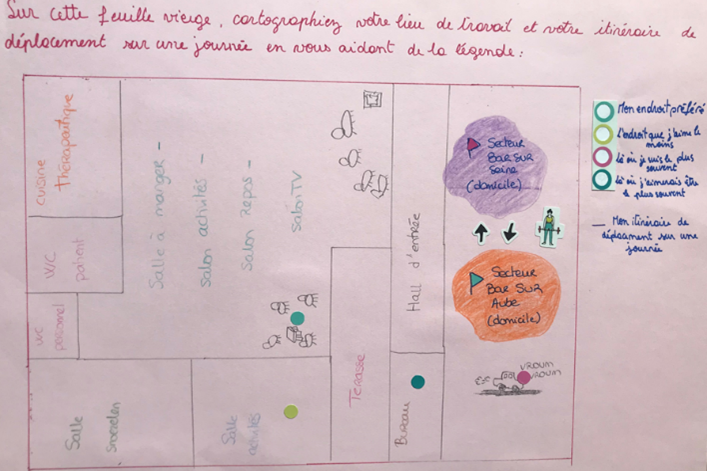 Sur cette feuille vierge, cartographiez votre lieu de travail et votre itinéraire de
déplacement sur une journée en vous aidant de la légende :
cuisine
thérapeutique
W/C
patient
WC
personnel
Salle
snoezelen
Salle à manger -
salon activités -
salon Repos -
salon TV
Salle
activités
Terasse
Hall d'entrée
Bureau
Secteur
Bar sur
Seine
(domicile)
Secteur
Bar sur
Aube
(domicile)
VROUM
VROUM
Mon endroit préféré
L'endroit que j'aime le
moins
là où je suis le plus
souvent
là où j'aimerais être
le plus souvent
— Mon itinéraire de
déplacement sur une
journée